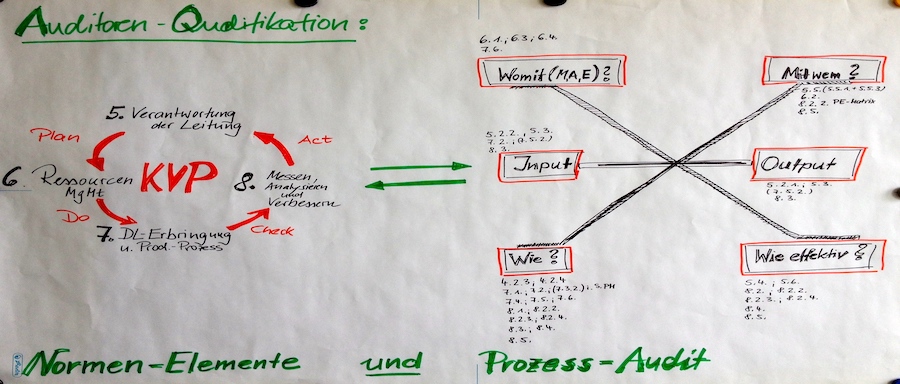 Auditoren-Qualifikation:
5. Verantwortung
der Leitung
Plan
Act
6. Ressourcen
MgMt
KVP
8. Messen,
Analysieren
und
Verbessern
Do
7. DL-Erbringung
u. Prod.-Prozess
Check
6.1.; 6.3; 6.4.
7.6.
Womit (M,A,E)?
Mit wem?
5.5. (5.5.1 + 5.5.3)
6.2.
8.2.2. PE-Matrix
8.5.
5.2.2., 5.3.
7.2.; (7.5.2)
8.3.
Input
Output
5.2.1.; 5.3.
(7.5.2.)
8.3.
Wie?
4.2.3; 4.2.4
7.1.; 7.2.; (7.3.2);
7.4.; 7.5.; 7.6.
8.1.; 8.2.2.
8.2.3; 8.2.4.
8.3.; 8.4.
8.5.
Wie effektiv?
5.4.; 5.6.
8.2.; 8.2.2.
8.2.3.; 8.2.4.
8.4.
8.5.
Normen-Elemente und Prozess-Audit